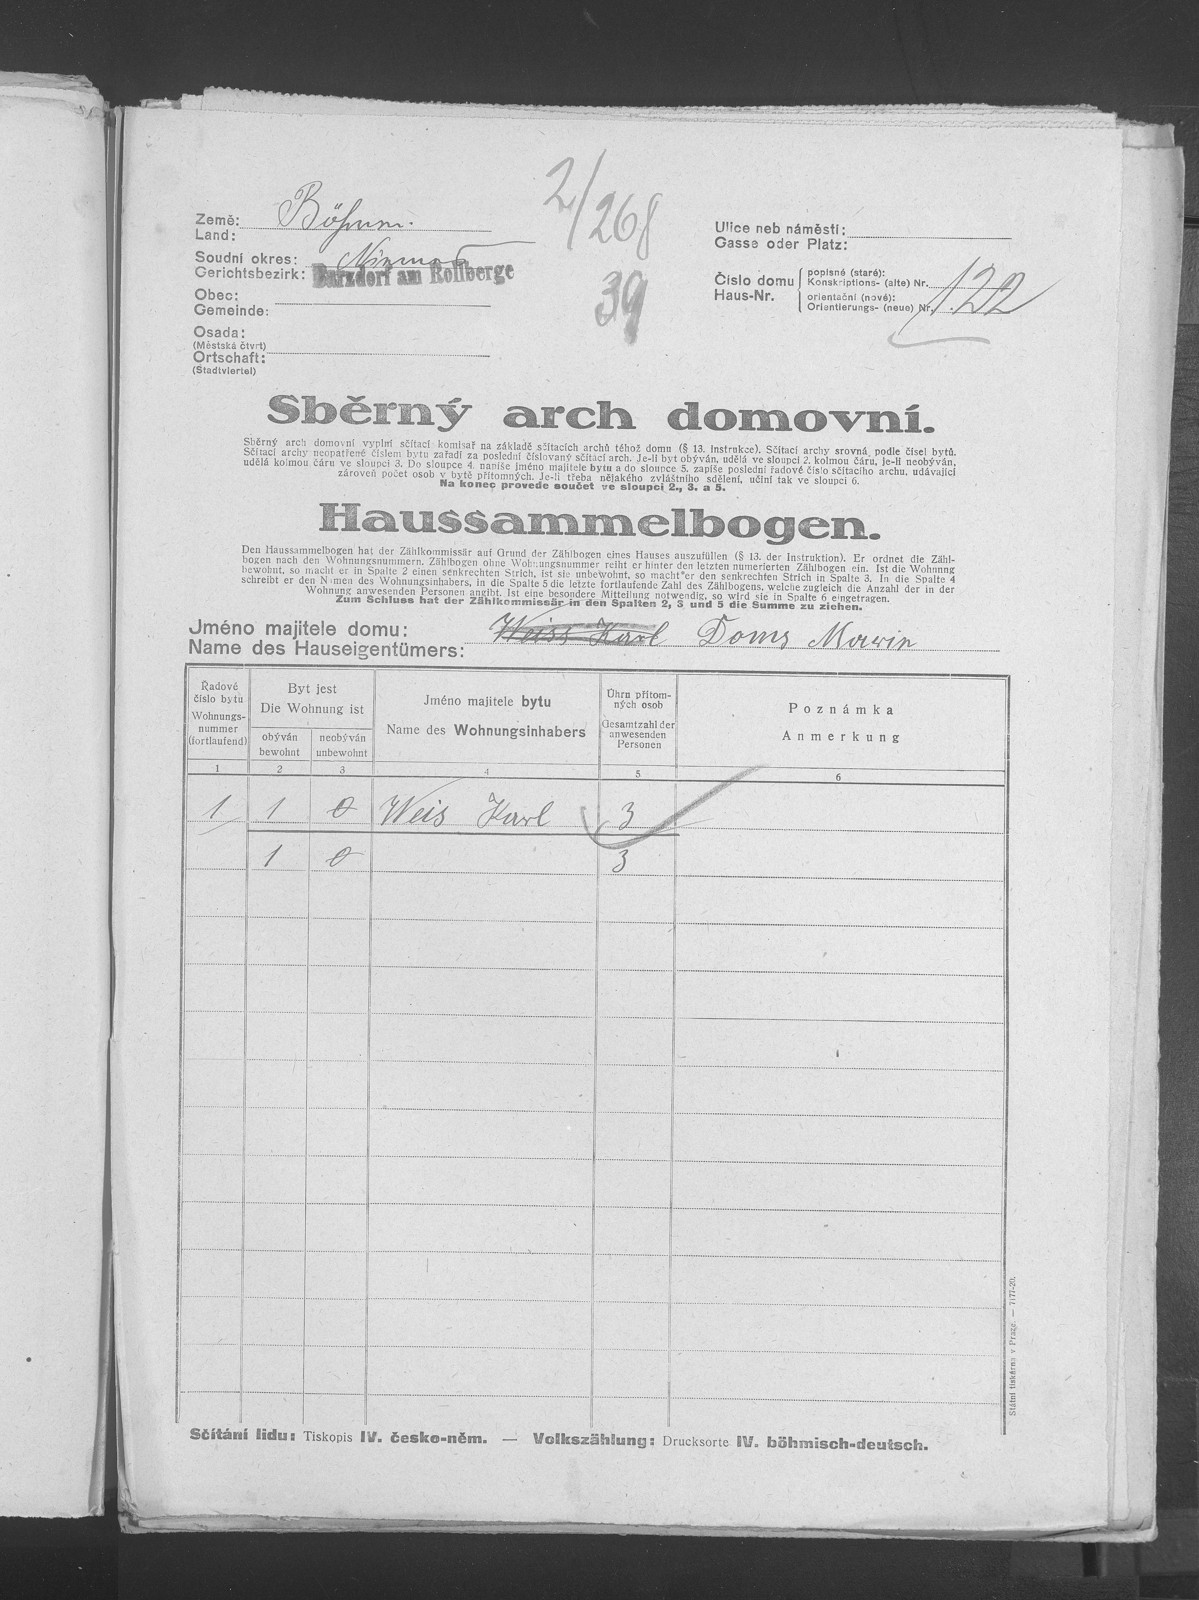 2/268
39
Země: Böhmen.
Land:
Soudní okres:
Gerichtsbezirk: Barzdorf am Rollberge
Obec:
Gemeinde:
Osada:
(Městská čtvrt)
Ortschaft:
(Stadtviertel)
Ulice neb náměstí:
Gasse oder Platz:
Číslo domu
Haus-Nr.
popisné (staré):
Konskriptions- (alte) Nr.
orientační (nové):
Orientierungs- (neue) Nr. 122
Sběrný arch domovní.
Sběrný arch domovní vyplní sčítací komisař na základě sčítacích archů téhož domu (§ 13. Instrukce). Sčítací archy srovná podle čísel bytů.
Sčítací archy neopatřené číslem bytu zařadí za poslední číslovaný sčítací arch. Je-li byt obýván, udělá ve sloupci 2. kolmou čáru, je-li neobýván,
udělá kolmou čáru ve sloupci 3. Do sloupce 4. napíše jméno majitele bytu a do sloupce 5. zapíše poslední řadové číslo sčítacího archu, udávající
zároveň počet osob v bytě přítomných. Je-li třeba nějakého zvláštního sdělení, učiní tak ve sloupci 6.
Na konec provede součet ve sloupci 2., 3. a 5.
Haussammelbogen.
Den Haussammelbogen hat der Zählkommissär auf Grund der Zählbogen eines Hauses auszufüllen (§ 13. der Instruktion). Er ordnet die Zähl-
bogen nach den Wohnungsnummern. Zählbogen ohne Wohnungsnummer reiht er hinter den letzten numerierten Zählbogen ein. Ist die Wohnnng
bewohnt, so macht er in Spalte 2 einen senkrechten Strich, ist sie unbewohnt, so macht er den senkrechten Strich in Spalte 3. In die Spalte 4
schreibt er den Namen des Wohnungsinhabers, in die Spalte 5 die letzte fortlaufende Zahl des Zählbogens, welche zugleich die Anzahl der in der
Wohnung anwesenden Personen angibt. Ist eine besondere Mitteilung notwendig, so wird sie in Spalte 6 eingetragen.
Zum Schluss hat der Zählkommissär in den Spalten 2, 3 und 5 die Summe zu ziehen.
Jméno majitele domu: Weiss Karl Doms Marie
Name des Hauseigentümers:
Řadové
číslo bytu
Wohnungs-
nummer
(fortlaufend)
Byt jest
Die Wohnung ist
obýván
bewohnt
neobýván
unbewohnt
Jméno majitele bytu
Name des Wohnungsinhabers
Úhrn přítom-
ných osob
Gesamtzahl der
anwesenden
Personen
Poznámka
Anmerkung
1 2 3 4 5 6
1 1 0 Weis Karl 3
1 0 3
Sčítání lidu: Tiskopis IV. česko-něm. — Volkszählung: Drucksorte IV. böhmisch-deutsch.
Státní tiskárna v Praze. — 7177-20.